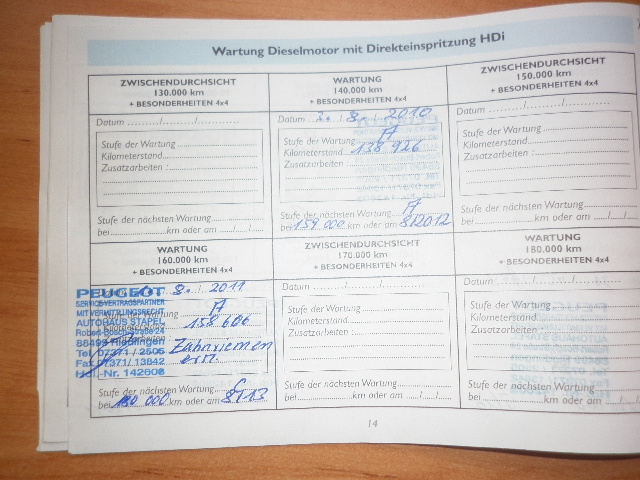 Wartung Dieselmotor mit Direkteinspritzung HDi
ZWISCHENDURCHSICHT
130.000 km
+ BESONDERHEITEN 4x4
Datum ........./........./...............
Stufe der Wartung
Kilometerstand
Zusatzarbeiten :
Stufe der nächsten Wartung
bei ............km oder am ....../....../......
WARTUNG
140.000 km
+ BESONDERHEITEN 4x4
Datum / 8. / 2010
Stufe der Wartung A
Kilometerstand 138 926
Zusatzarbeiten :
Stufe der nächsten Wartung A
bei 159 000 km oder am 8/2012
ZWISCHENDURCHSICHT
150.000 km
+ BESONDERHEITEN 4x4
Datum ........./........./...............
Stufe der Wartung
Kilometerstand
Zusatzarbeiten :
Stufe der nächsten Wartung
bei ............km oder am ....../....../......
WARTUNG
160.000 km
+ BESONDERHEITEN 4x4
8. / 2011
PEUGEOT
SERVICE-VERTRAGSPARTNER
MIT VERMITTLUNGSRECHT
AUTOHAUS STAPEL
Robert-Bosch-Straße 24
88499 Riedlingen
Tel. 07371 / 2506
Fax 07371/ 13842
Hdl.-Nr. 142606
der Wartung A
158 606
Zahnriemen
ern.
Stufe der nächsten Wartung C
bei 180 000 km oder am 8/13
ZWISCHENDURCHSICHT
170.000 km
+ BESONDERHEITEN 4x4
Datum ........./........./...............
Stufe der Wartung
Kilometerstand
Zusatzarbeiten :
Stufe der nächsten Wartung
bei ............km oder am ....../....../......
WARTUNG
180.000 km
+ BESONDERHEITEN 4x4
Datum ........./........./...............
Stufe der Wartung
Kilometerstand
Zusatzarbeiten :
Stufe der nächsten Wartung
bei ............km oder am ....../....../......
14